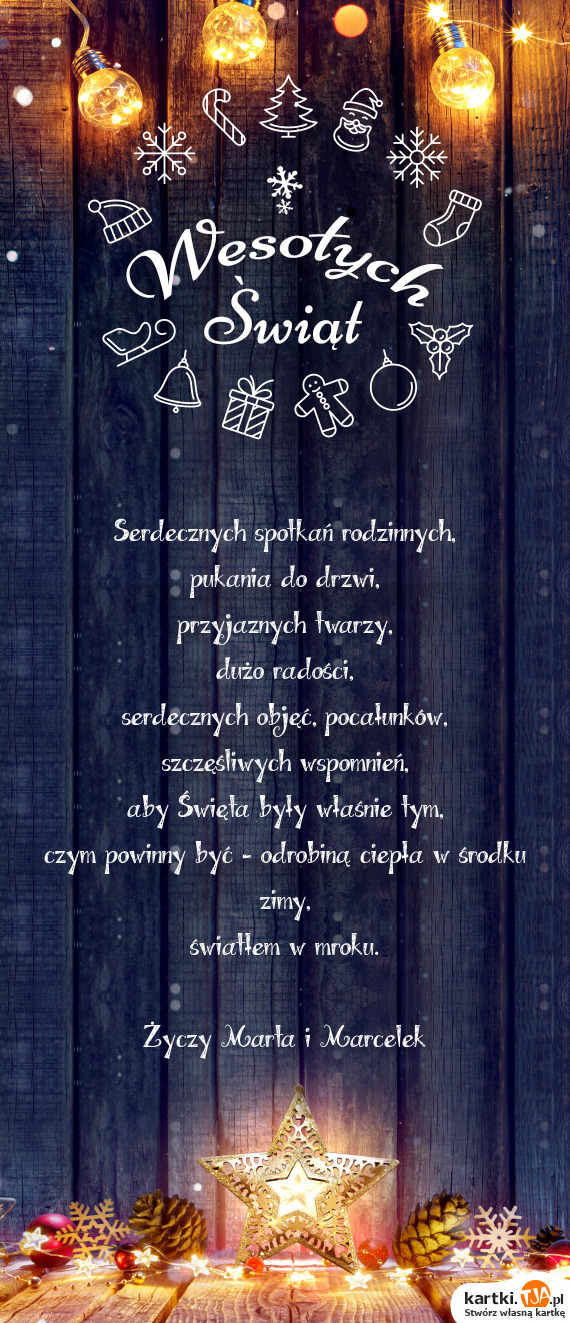 Wesołych
Świąt
Serdecznych spotkań rodzinnych,
pukania do drzwi,
przyjaznych twarzy,
dużo radości,
serdecznych objęć, pocałunków,
szczęśliwych wspomnień,
aby Święta były właśnie tym,
czym powinny być - odrobiną ciepła w środku
zimy,
światłem w mroku.
Życzy Marta i Marcelek
kartki.TJA.pl
Stwórz własną kartkę